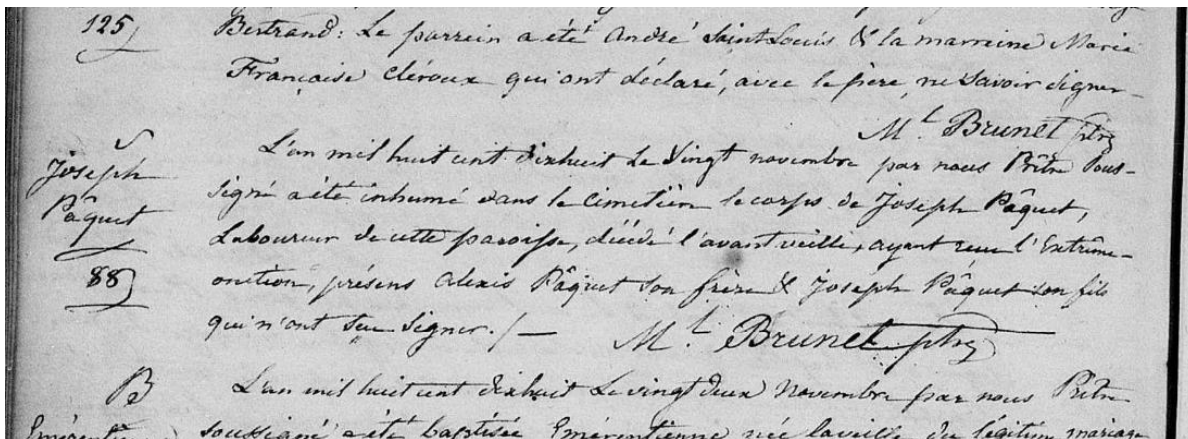 125
Bertrand: Le parrein a été André Saint Louis & la marreine Marie
Française Cléroux qui ont déclaré, avec le père, ne savoir signer
Mt. Brunet ptre
S
Joseph
Pâquet
88
L'an mil huit cent dixhuit le vingt novembre par nous Prêtre sous-
signé a été inhumé dans le Cimetière le corps de Joseph Pâquet,
Laboureur de cette paroisse, décédé l'avant veille, ayant reçu l'Extrême-
onction, présens Alexis Pâquet son frère & Joseph Pâquet son fils
qui n'ont seu signer. /—
Mt. Brunet ptre
B
L'an mil huit cent dixhuit le vingt deux Novembre par nous Prêtre
soussigné a été baptisée Emérentienne née la veille du légitime mariage